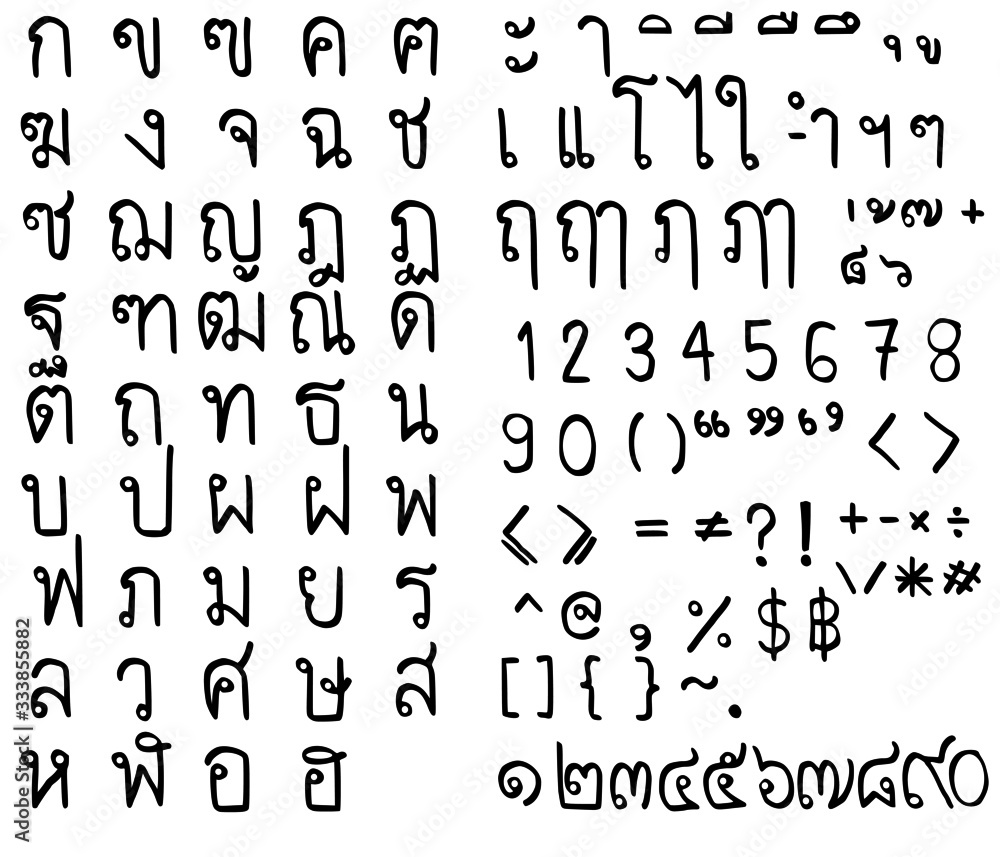 ก ข ฃ ค ฅ
ฆ ง จ ฉ ช
ซ ฌ ญ ฎ ฏ
ฐ ฑ ฒ ณ ด
ต ถ ท ธ น
บ ป ผ ฝ พ
ฟ ภ ม ย ร
ล ว ศ ษ ส
ห ฬ อ ฮ
ะ า ิ ี ื ึ ุ ู
เ แ โ ไ ใ ำ ฯ ๆ
ฤ ฤๅ ภ ภๅ ่ ้ ๊ ๋
1 2 3 4 5 6 7 8
9 0 ( ) “ ” ‘ ’ < >
= ≠ ? ! + - × ÷
\ / * #
^ @ , % $ ฿
[ ] { } ~ .
๑ ๒ ๓ ๔ ๕ ๖ ๗ ๘ ๙ ๐
Adobe Stock | #333855882